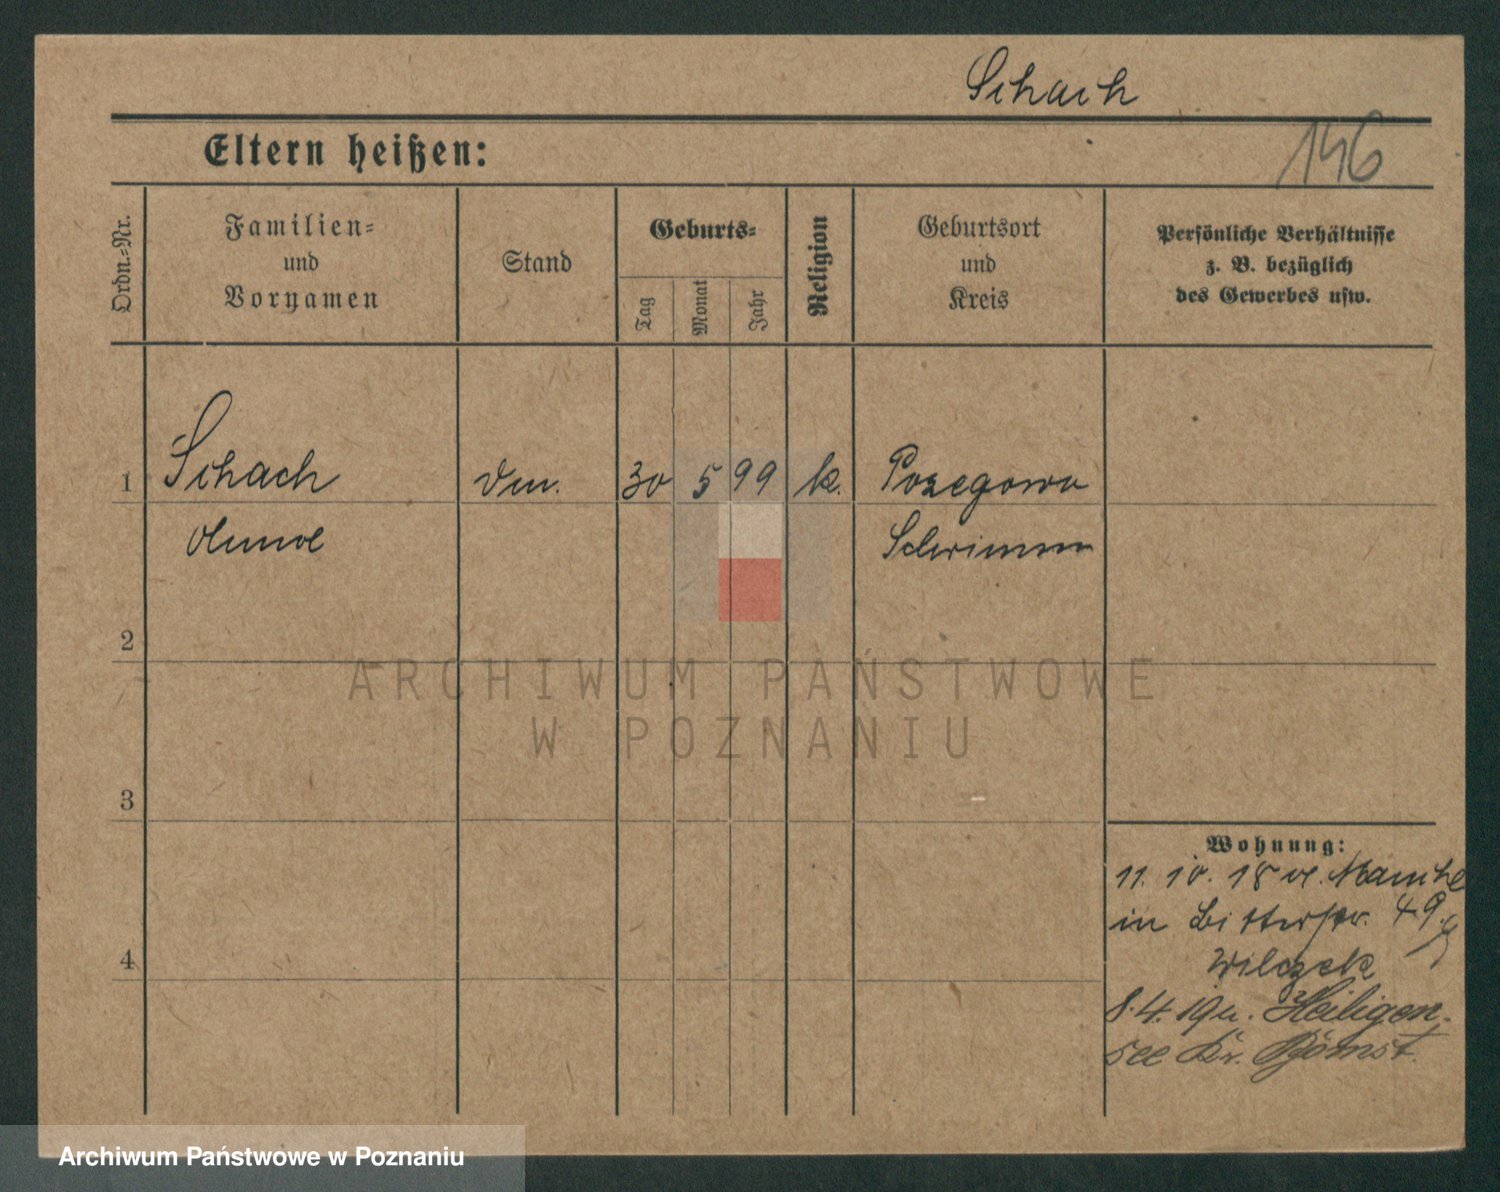 Schach
146
Eltern heißen:
Ordn.-Nr.
Familien-
und
Vornamen
Stand
Geburts-
Tag
Monat
Jahr
Religion
Geburtsort
und
Kreis
Persönliche Verhältnisse
z. B. bezüglich
des Gewerbes usw.
1 Schach 30 5 99 k. Pozegowo
Schrimm
2
3
4
Wohnung:
11. 10. 18 v.
in Bitterstr. 49
Wilczek
8.4.19 n. Heiligen-
see Kr. Bomst.
ARCHIWUM PAŃSTWOWE
W POZNANIU
Archiwum Państwowe w Poznaniu